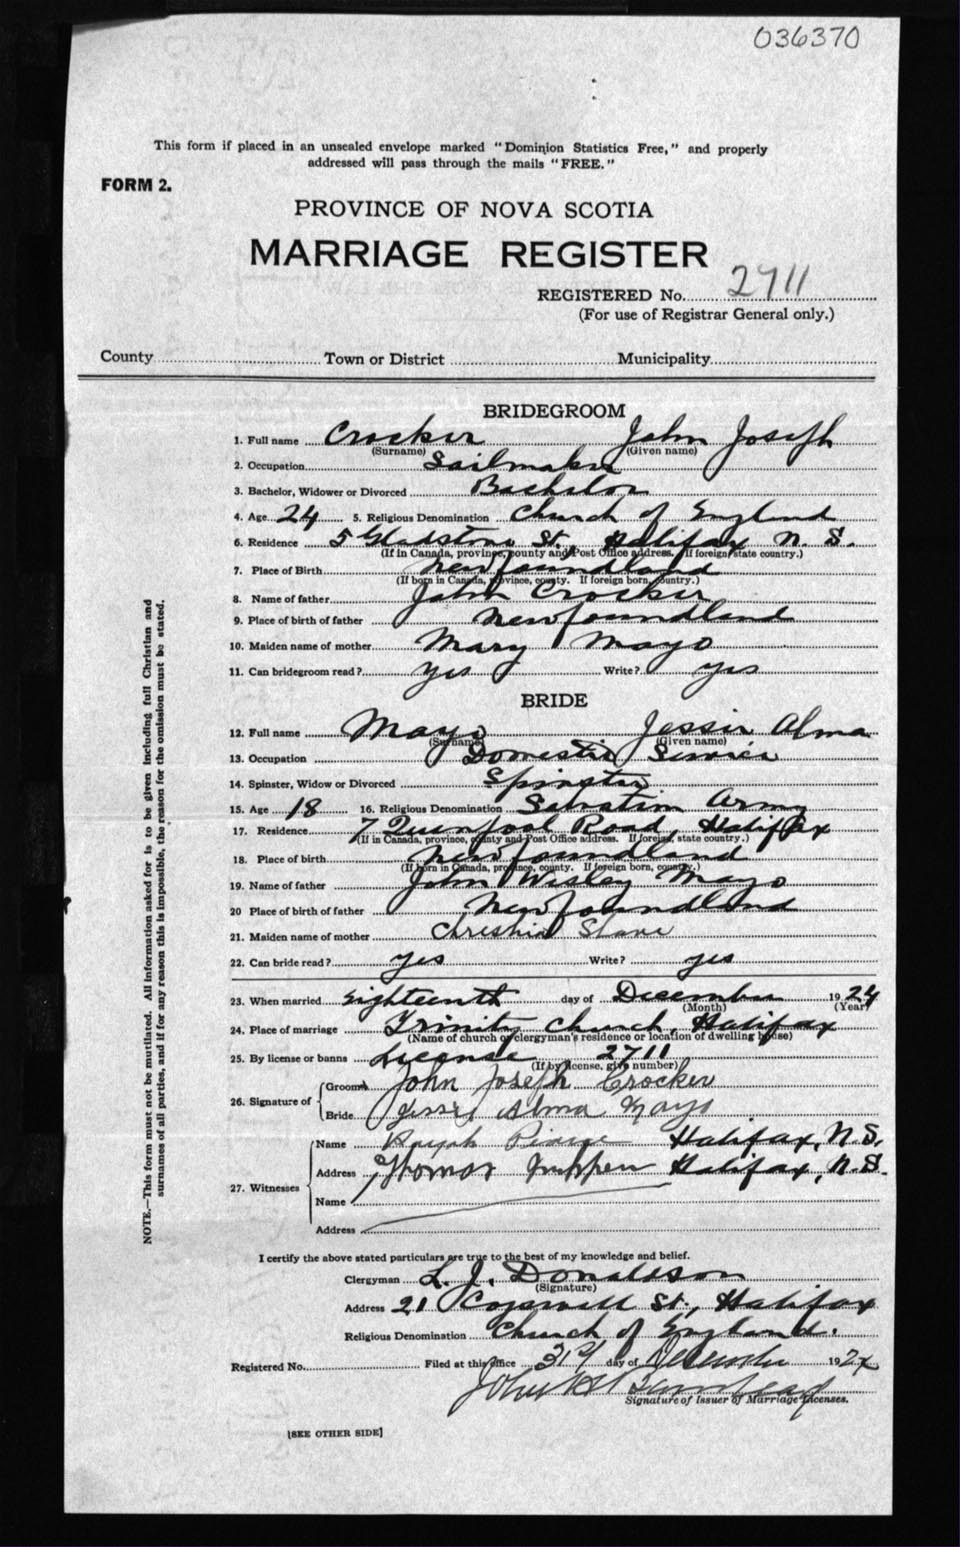 036370
This form if placed in an unsealed envelope marked "Dominion Statistics Free," and properly
addressed will pass through the mails "FREE."
FORM 2.
PROVINCE OF NOVA SCOTIA
MARRIAGE REGISTER
REGISTERED No. 2711
(For use of Registrar General only.)
County Town or District Municipality
BRIDEGROOM
1. Full name Crocker John Joseph
(Surname) (Given name)
2. Occupation Sailmaker
3. Bachelor, Widower or Divorced Bachelor
4. Age 24 5. Religious Denomination Church of England
6. Residence 5 Gladstone St., Halifax N. S.
(If in Canada, province, county and Post Office address. If foreign, state country.)
7. Place of Birth Newfoundland
(If born in Canada, province, county. If foreign born, country.)
8. Name of father John Crocker
9. Place of birth of father Newfoundland
10. Maiden name of mother Mary Mayo
11. Can bridegroom read? yes Write? yes
BRIDE
12. Full name Mayo Jessie Alma
(Surname) (Given name)
13. Occupation Domestic Service
14. Spinster, Widow or Divorced Spinster
15. Age 18 16. Religious Denomination Salvation Army
17. Residence 7 Quinpool Road, Halifax
(If in Canada, province, county and Post Office address. If foreign, state country.)
18. Place of birth Newfoundland
(If born in Canada, province, county. If foreign born, country.)
19. Name of father John Wesley Mayo
20 Place of birth of father Newfoundland
21. Maiden name of mother
22. Can bride read? yes Write? yes
23. When married Eighteenth day of December 1924
(Month) (Year)
24. Place of marriage Trinity Church, Halifax
(Name of church or clergyman's residence or location of dwelling house)
25. By license or banns License 2711
(If by license, give number)
26. Signature of
Groom John Joseph Crocker
Bride Jessie Alma Mayo
27. Witnesses
Name Ralph Halifax, N.S.
Address Thomas Halifax, N.S.
Name
Address
I certify the above stated particulars are true to the best of my knowledge and belief.
Clergyman L. J. Donaldson
(Signature)
Address 21 Cogswell St., Halifax
Religious Denomination Church of England.
Registered No. Filed at this office 31st day of December 1924
John
Signature of Issuer of Marriage Licenses.
[SEE OTHER SIDE]
NOTE.—This form must not be mutilated. All information asked for is to be given including full Christian and
surnames of all parties, and if for any reason this is impossible, the reason for the omission must be stated.